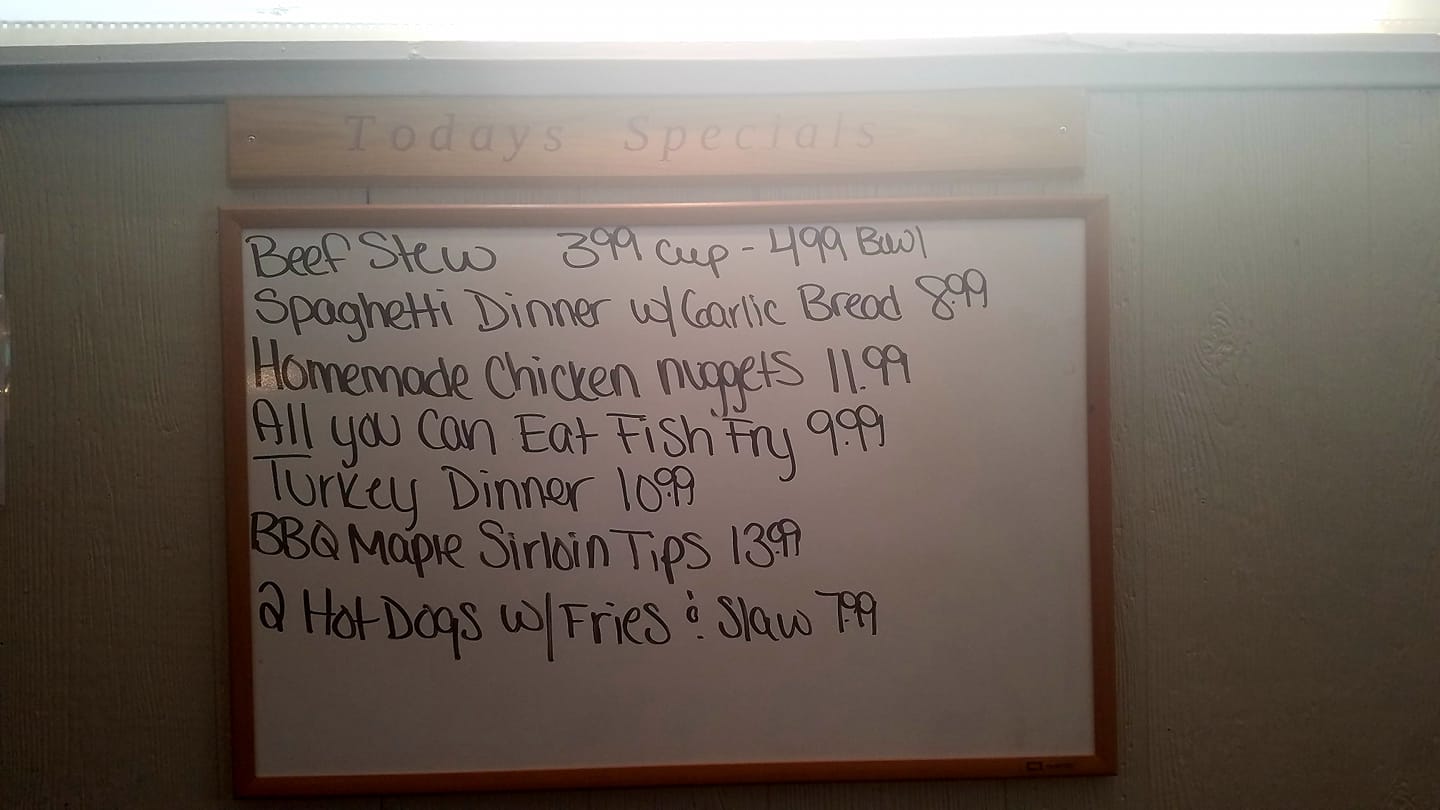 Todays Specials
Beef Stew 399 Cup - 499 Bowl
Spaghetti Dinner w/Garlic Bread 8.99
Homemade Chicken Nuggets 11.99
All you Can Eat Fish Fry 9.99
Turkey Dinner 10.99
BBQ Maple Sirloin Tips 13.99
2 Hot Dogs w/Fries & Slaw 7.99